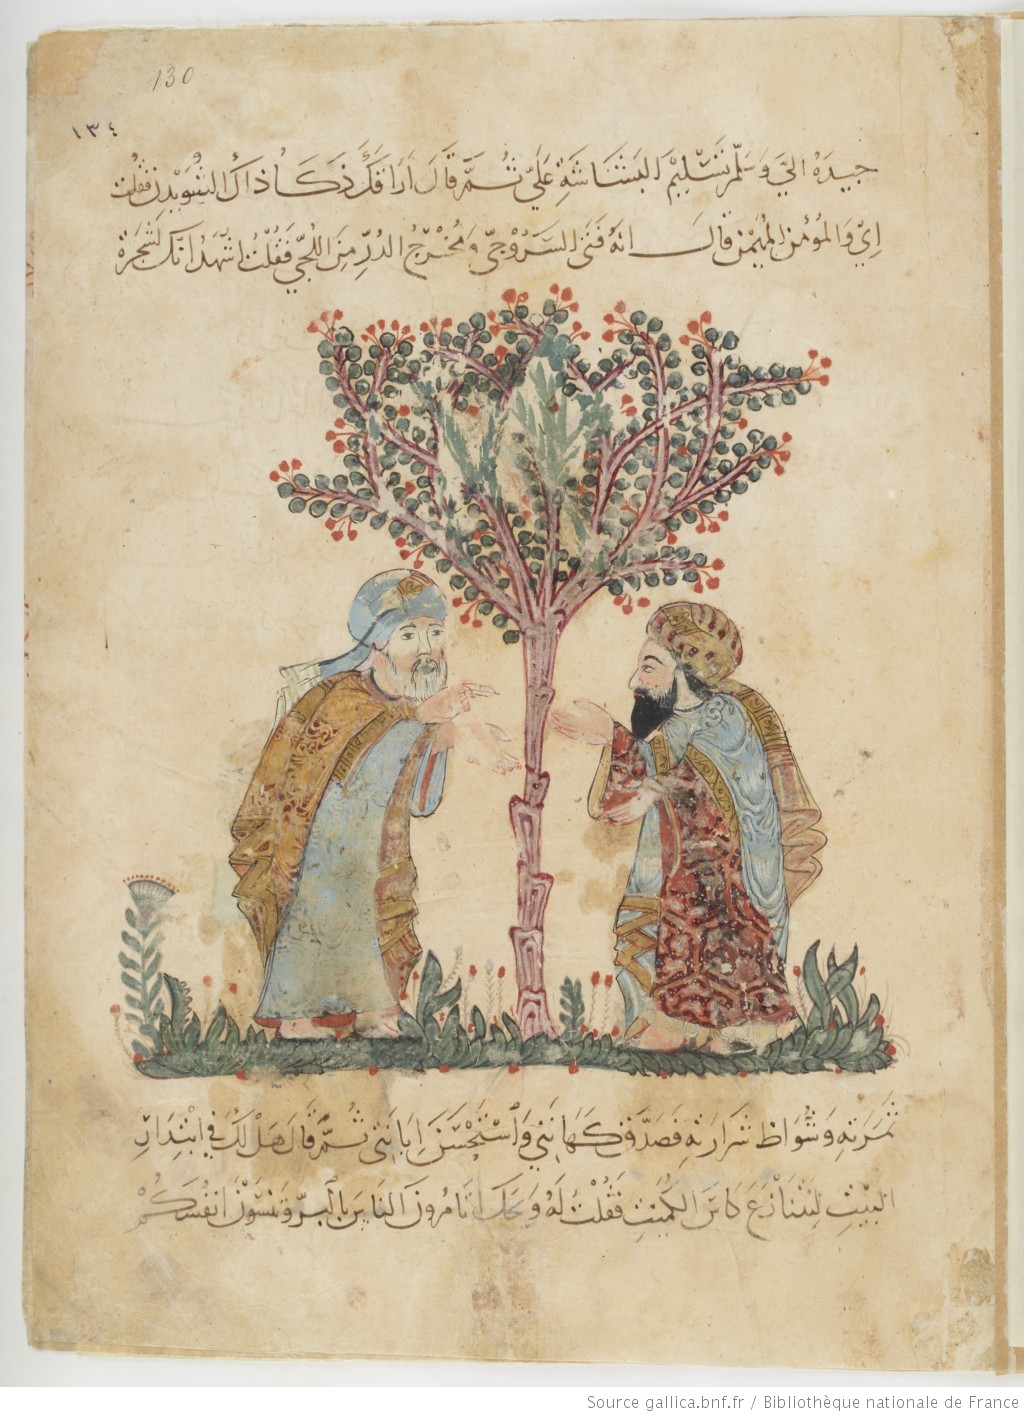 130
١٣٤
جيده الي وسلم تسليم البشاشة علي ثم قال أراقك ذكا ذاك الشويدن فقلت
إي والمؤمن المهيمن قال انه فتى السروجي ومخرج الدر من اللجي فقلت اشهد انك لشجرة
ثمرته وشواظ شرارته فصدق كهانتي واستحسن ابانتي ثم قال هل لك في ابتدار
البيت لنتنازع كأس الكميت فقلت له ويحك اتامرون الناس بالبر وتنسون انفسكم
Source gallica.bnf.fr / Bibliothèque nationale de France